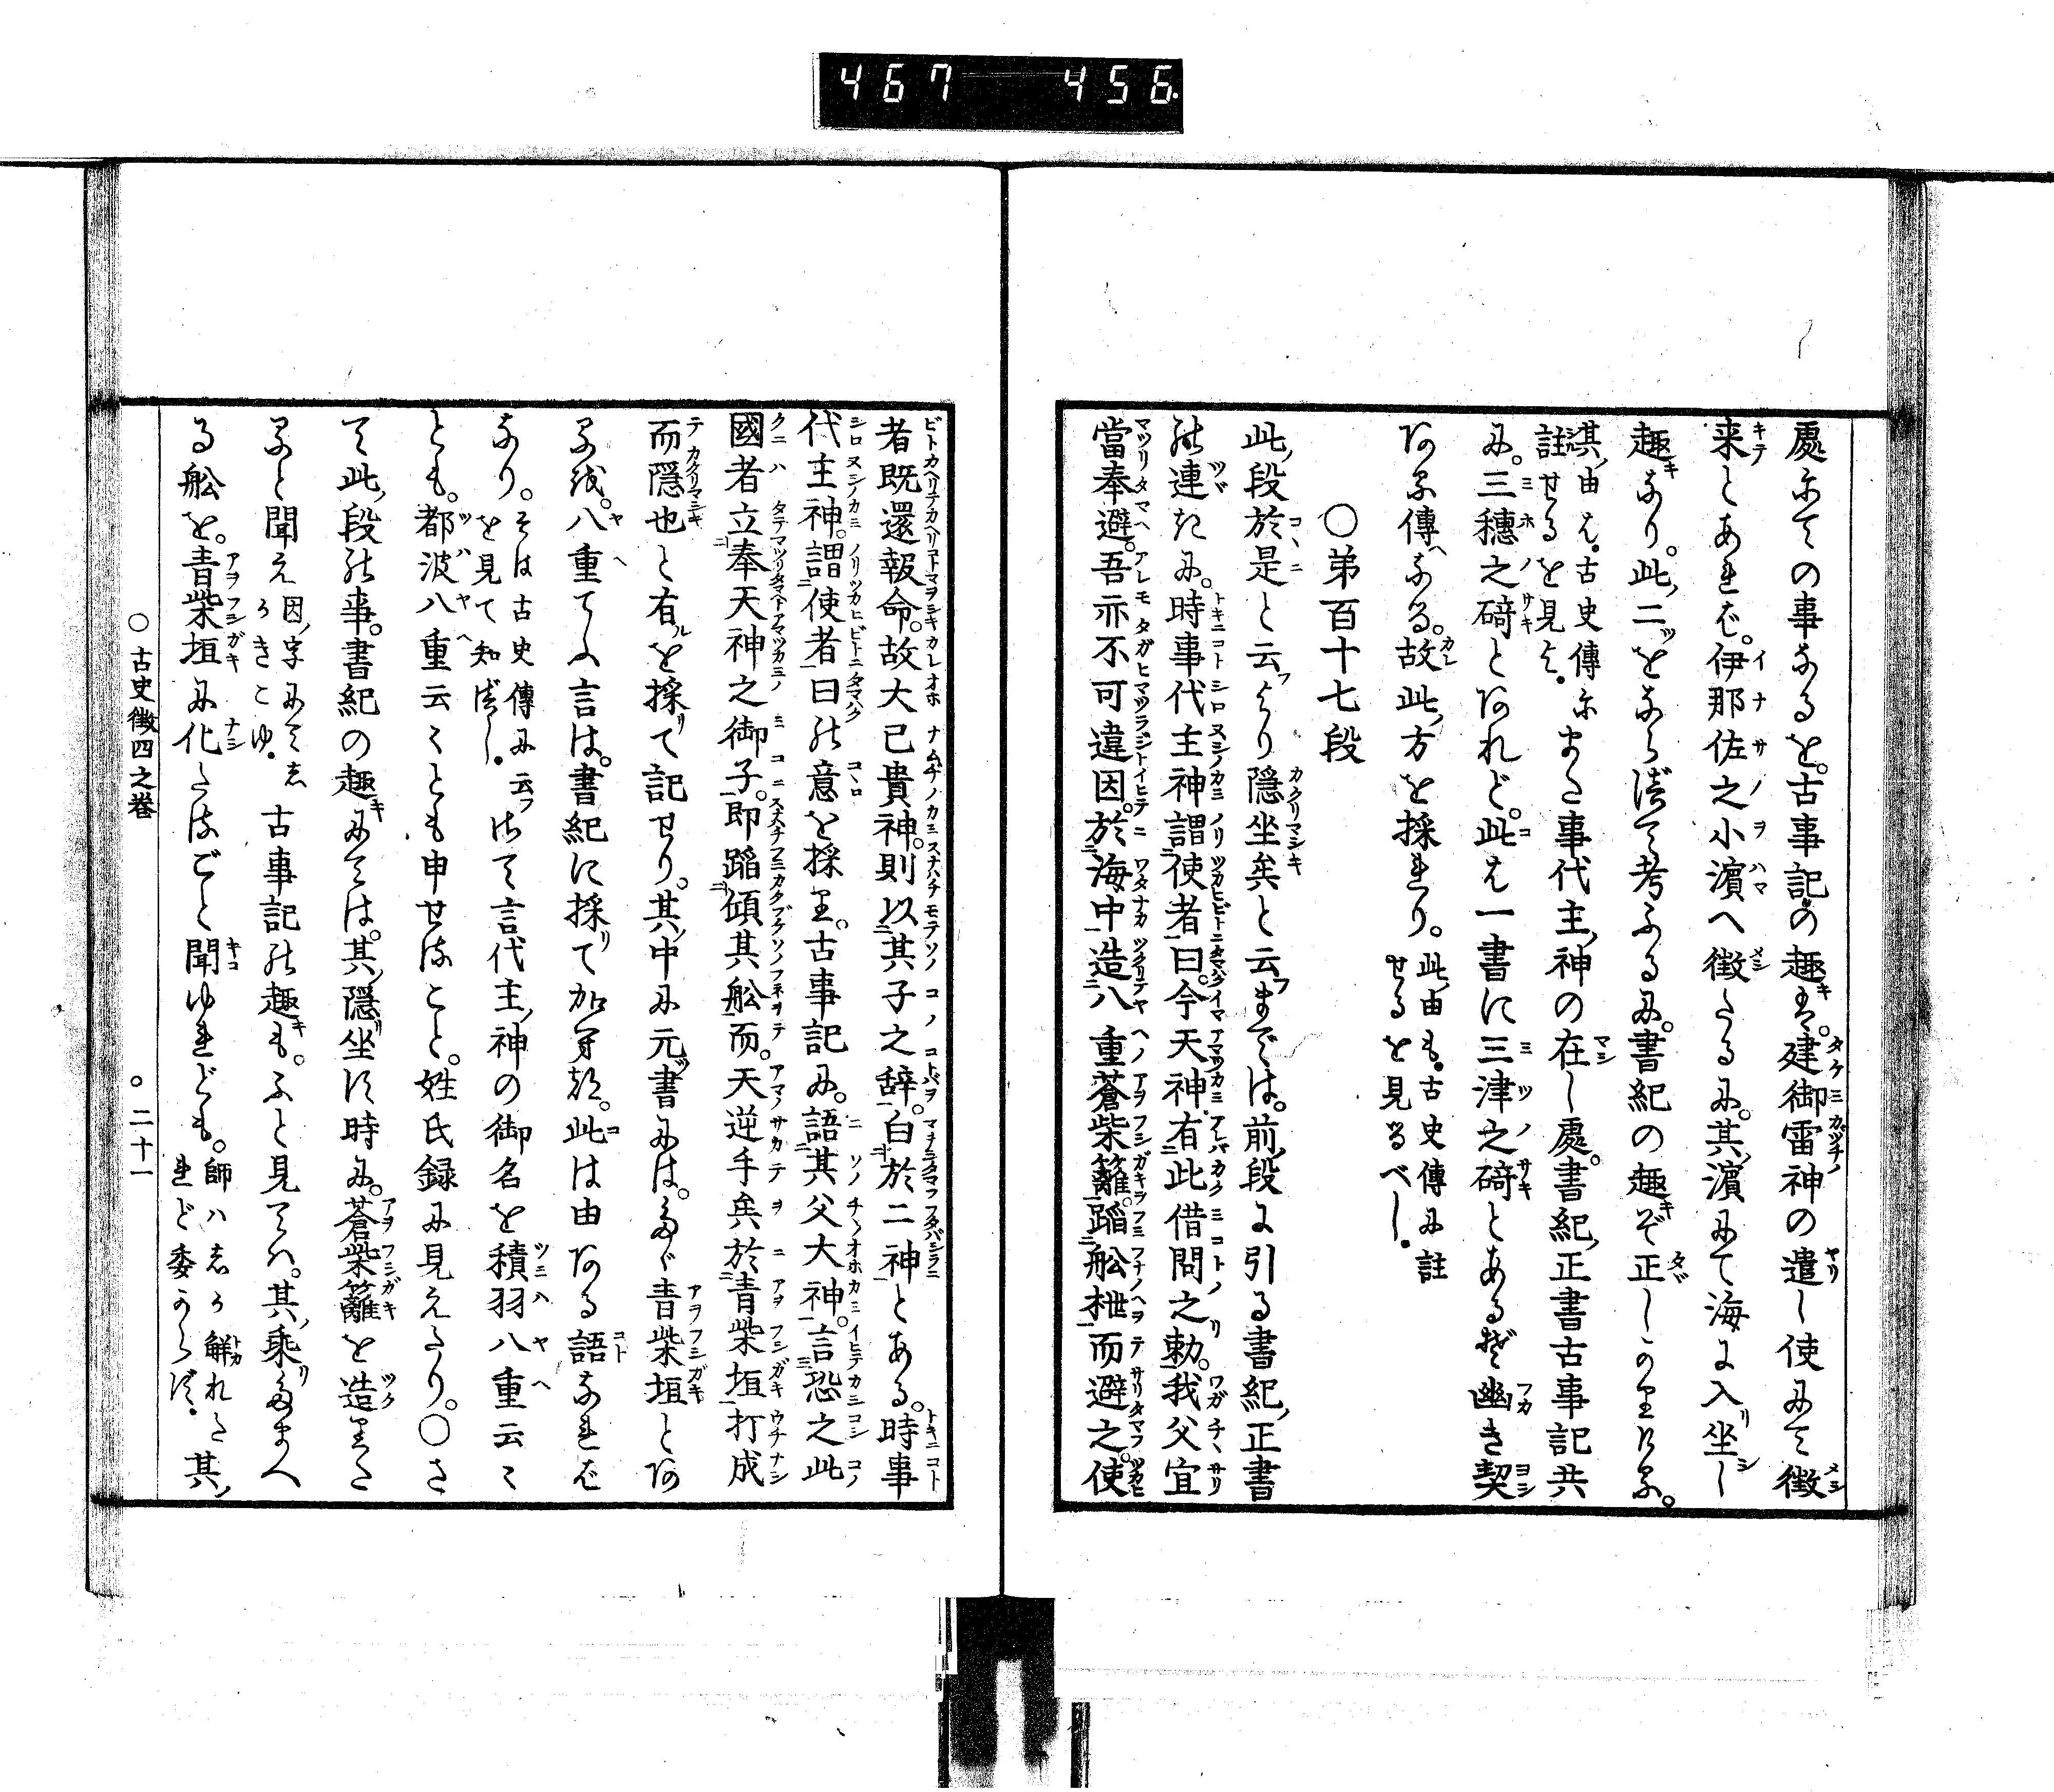 467 456
處にての事なるを。古事記の趣は。建御雷神の遣し使にて徴
来とあれば。伊那佐之小濱へ徴たるに。其濱にて海に入坐し
趣なり。此二ツをならべて考ふるに。書紀の趣ぞ正しかりける。
其由は。古史傳に註せるを見よ。また事代主神の在し處。書紀正書古事記共
に。三穂之碕とあれど。此は一書に三津之碕とあるぞ幽き契
ある傳へなる。故此方を採れり。此由も。古史傳に註せるを見るべし。
○第百十七段
此段於是と云より隱坐矣と云までは。前段に引る書紀正書
の連きに。時事代主神謂使者曰。今天神有此借問之勅。我父宜
當奉避。吾亦不可違因。於海中造八重蒼柴籬。蹈船枻而避之。使
者既還報命。故大己貴神。則以其子之辭。白於二神とある。時事
代主神。謂使者曰の意を採り。古事記に。語其父大神。言恐之此
國者立奉天神之御子。即蹈傾其船而。天逆手矣於青柴垣打成
而隱也と有を採て記せり。其中に元書には。たゞ青柴垣とあ
るを。八重てふ言は。書紀に採て加へつ。此は由ある語なれば
なり。そは古史傳に云を見て知べし。さて言代主神の御名を積羽八重云々
とも。都波八重云々とも申せること。姓氏録に見えたり。○さ
て此段の事。書紀の趣にては。其隱坐す時に。蒼柴籬を造りた
ると聞え因字にてしかきこゆ。古事記の趣も。ふと見ては。其乘りたまへ
る船を。青柴垣に化たるごと聞ゆれども。師ハしか解れたれど委からず。其
○古史徴四之巻
○二十一